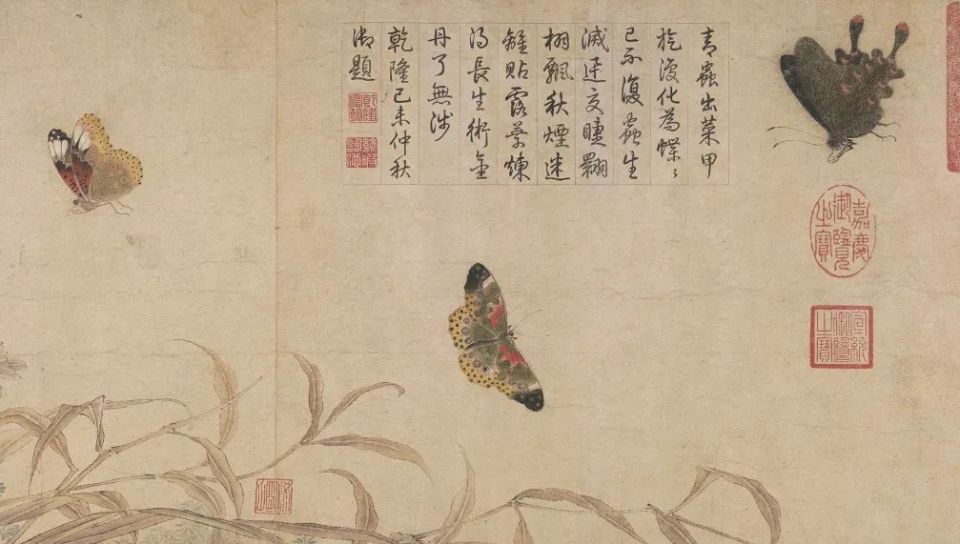 青蟲出菜甲
旋復化為蝶〻
已不復蟲生
滅迅交睫翾
栩飄秋煙迷
離貼露葉煉
得長生術金
丹了無涉
乾隆己未仲秋
御題
嘉慶
御覽
之寶
宣統
御覽
之寶